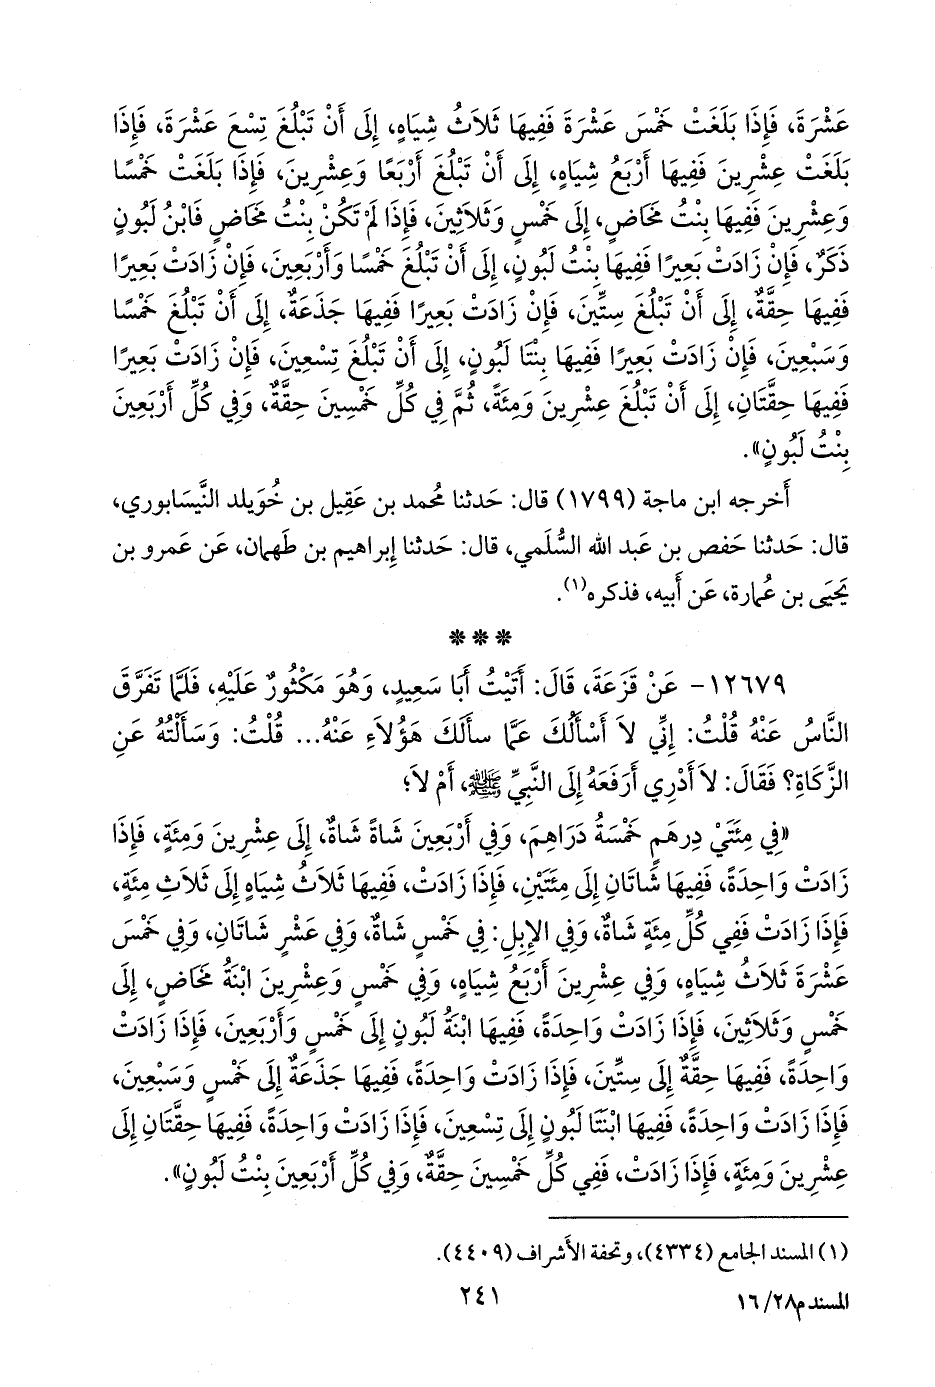 عَشْرَةَ، فَإِذَا بَلَغَتْ خَمْسَ عَشْرَةَ فَفِيهَا ثَلَاثُ شِيَاهٍ، إِلَى أَنْ تَبْلُغَ تِسْعَ عَشْرَةَ، فَإِذَا
بَلَغَتْ عِشْرِينَ فَفِيهَا أَرْبَعُ شِيَاهٍ، إِلَى أَنْ تَبْلُغَ أَرْبَعًا وَعِشْرِينَ، فَإِذَا بَلَغَتْ خَمْسًا
وَعِشْرِينَ فَفِيهَا بِنْتُ مَخَاضٍ، إِلَى خَمْسٍ وَثَلَاثِينَ، فَإِذَا لَمْ تَكُنْ بِنْتُ مَخَاضٍ فَابْنُ لَبُونٍ
ذَكَرٌ، فَإِنْ زَادَتْ بَعِيرًا فَفِيهَا بِنْتُ لَبُونٍ، إِلَى أَنْ تَبْلُغَ خَمْسًا وَأَرْبَعِينَ، فَإِنْ زَادَتْ بَعِيرًا
فَفِيهَا حِقَّةٌ، إِلَى أَنْ تَبْلُغَ سِتِّينَ، فَإِنْ زَادَتْ بَعِيرًا فَفِيهَا جَذَعَةٌ، إِلَى أَنْ تَبْلُغَ خَمْسًا
وَسَبْعِينَ، فَإِنْ زَادَتْ بَعِيرًا فَفِيهَا بِنْتَا لَبُونٍ، إِلَى أَنْ تَبْلُغَ تِسْعِينَ، فَإِنْ زَادَتْ بَعِيرًا
فَفِيهَا حِقَّتَانِ، إِلَى أَنْ تَبْلُغَ عِشْرِينَ وَمِئَةً، ثُمَّ فِي كُلِّ خَمْسِينَ حِقَّةٌ، وَفِي كُلِّ أَرْبَعِينَ
بِنْتُ لَبُونٍ».
أَخرجه ابن ماجة (١٧٩٩) قال: حَدثنا مُحمد بن عَقِيل بن خُوَيلد النَّيسَابوري،
قال: حَدثنا حَفص بن عَبد الله السُّلَمي، قال: حَدثنا إِبراهيم بن طَهمان، عَن عَمرو بن
يَحيَى بن عُمارة، عَن أَبيه، فذكره(١).
***
١٢٦٧٩- عَنْ قَزَعَةَ، قَالَ: أَتَيْتُ أَبَا سَعِيدٍ، وَهُوَ مَكْثُورٌ عَلَيْهِ، فَلَمَّا تَفَرَّقَ
النَّاسُ عَنْهُ قُلْتُ: إِنِّي لاَ أَسْأَلُكَ عَمَّا سأَلَكَ هَؤُلَاءِ عَنْهُ... قُلْتُ: وَسَأَلْتُهُ عَنِ
الزَّكَاةِ؟ فَقَالَ: لاَ أَدْرِي أَرَفَعَهُ إِلَى النَّبِيِّ ﷺ، أَمْ لاَ؛
«فِي مِئَتَيْ دِرهَمٍ خَمْسَةُ دَرَاهِمَ، وَفِي أَرْبَعِينَ شَاةً شَاةٌ، إِلَى عِشْرِينَ وَمِئَةٍ، فَإِذَا
زَادَتْ وَاحِدَةً، فَفِيهَا شَاتَانِ إِلَى مِئَتَيْنِ، فَإِذَا زَادَتْ، فَفِيهَا ثَلَاثُ شِيَاهٍ إِلَى ثَلَاثِ مِئَةٍ،
فَإِذَا زَادَتْ فَفِي كُلِّ مِئَةٍ شَاةٌ، وَفِي الإِبِلِ: فِي خَمْسٍ شَاةٌ، وَفِي عَشْرٍ شَاتَانِ، وَفِي خَمْسَ
عَشْرَةَ ثَلَاثُ شِيَاهٍ، وَفِي عِشْرِينَ أَرْبَعُ شِيَاهٍ، وَفِي خَمْسٍ وَعِشْرِينَ ابْنَةُ مَخَاضٍ، إِلَى
خَمْسٍ وَثَلَاثِينَ، فَإِذَا زَادَتْ وَاحِدَةً، فَفِيهَا ابْنَةُ لَبُونٍ إِلَى خَمْسٍ وَأَرْبَعِينَ، فَإِذَا زَادَتْ
وَاحِدَةً، فَفِيهَا حِقَّةٌ إِلَى سِتِّينَ، فَإِذَا زَادَتْ وَاحِدَةً، فَفِيهَا جَذَعَةٌ إِلَى خَمْسٍ وَسَبْعِينَ،
فَإِذَا زَادَتْ وَاحِدَةً، فَفِيهَا ابْنَتَا لَبُونٍ إِلَى تِسْعِينَ، فَإِذَا زَادَتْ وَاحِدَةً، فَفِيهَا حِقَّتَانِ إِلَى
عِشْرِينَ وَمِئَةٍ، فَإِذَا زَادَتْ، فَفِي كُلِّ خَمْسِينَ حِقَّةٌ، وَفِي كُلِّ أَرْبَعِينَ بِنْتُ لَبُونٍ».
(١) المسند الجامع (٤٣٣٤)، وتحفة الأَشراف (٤٤٠٩).
٢٤١
المسند م٢٨/ ١٦